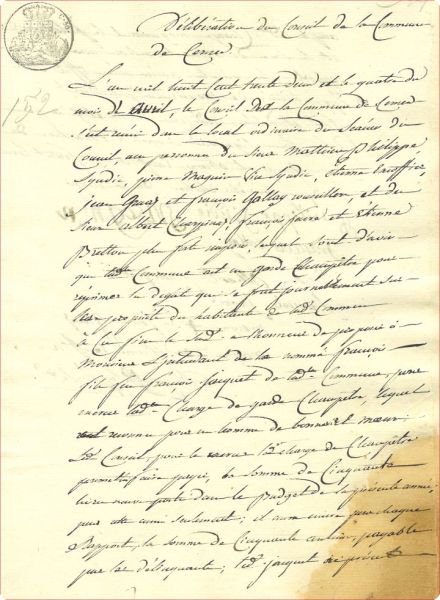 Délibération du Conseil de la Commune
de
L'an mil huit cent trente deux et le quatre du
mois d'avril, le Conseil de la Commune de
s'est réuni dans le local ordinaire des Séances du
Conseil, aux personnes des sieurs Mathieu Philippe,
Syndic, pierre vice Syndic, étienne
jean et françois Gallay conseillers, et des
sieurs albert françois favre et Etienne
plus fort imposés, lequel sont d'avis
que ladte Commune ait un garde Champêtre pour
réprimer les dégats que se font journellement sur
les propriétés des habitants de ladte Commune
à Ce fin le Sindic a l'honneur de proposer à
Monsieur L'intendant de la nommé françois
fils feu françois jacquet de ladte Commune, pour
exercer ladte Charge de garde Champêtre, lequel
est reconnu pour un homme de bonnes et mœurs.
Ledt Conseil, pour le Charge de Champêtre
faire payer, la somme de Cinquante
livres neuves portée dans le Budget de la présente année
pour cette année seulement; il aura encore pour chaque
Rapport, la somme de Cinquante centimes, payable
par les délinquants; ledt jacquet